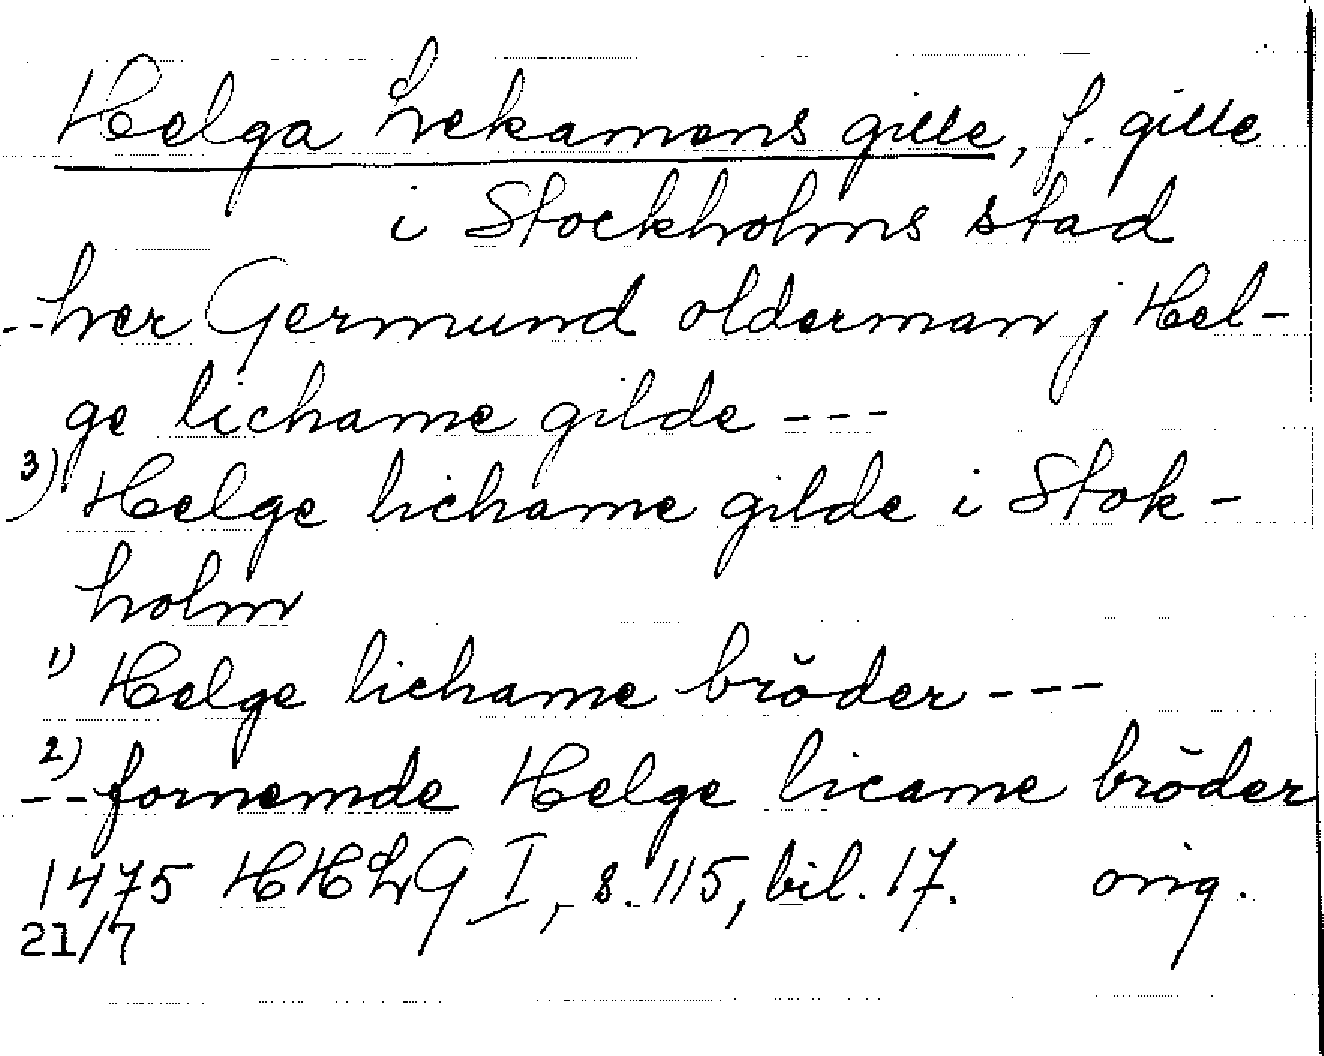 Helga Lekamens gille, f. gille
i Stockholms stad
--her Germund olderman j Hel-
ge lichame gilde ---
3) Helge lichame gilde i Stok-
holm
1) Helge lichame brŏder ---
2)
--fornemde Helge licame brōder
1475 HHLG I, s. 115, bil. 17. orig.
21/7